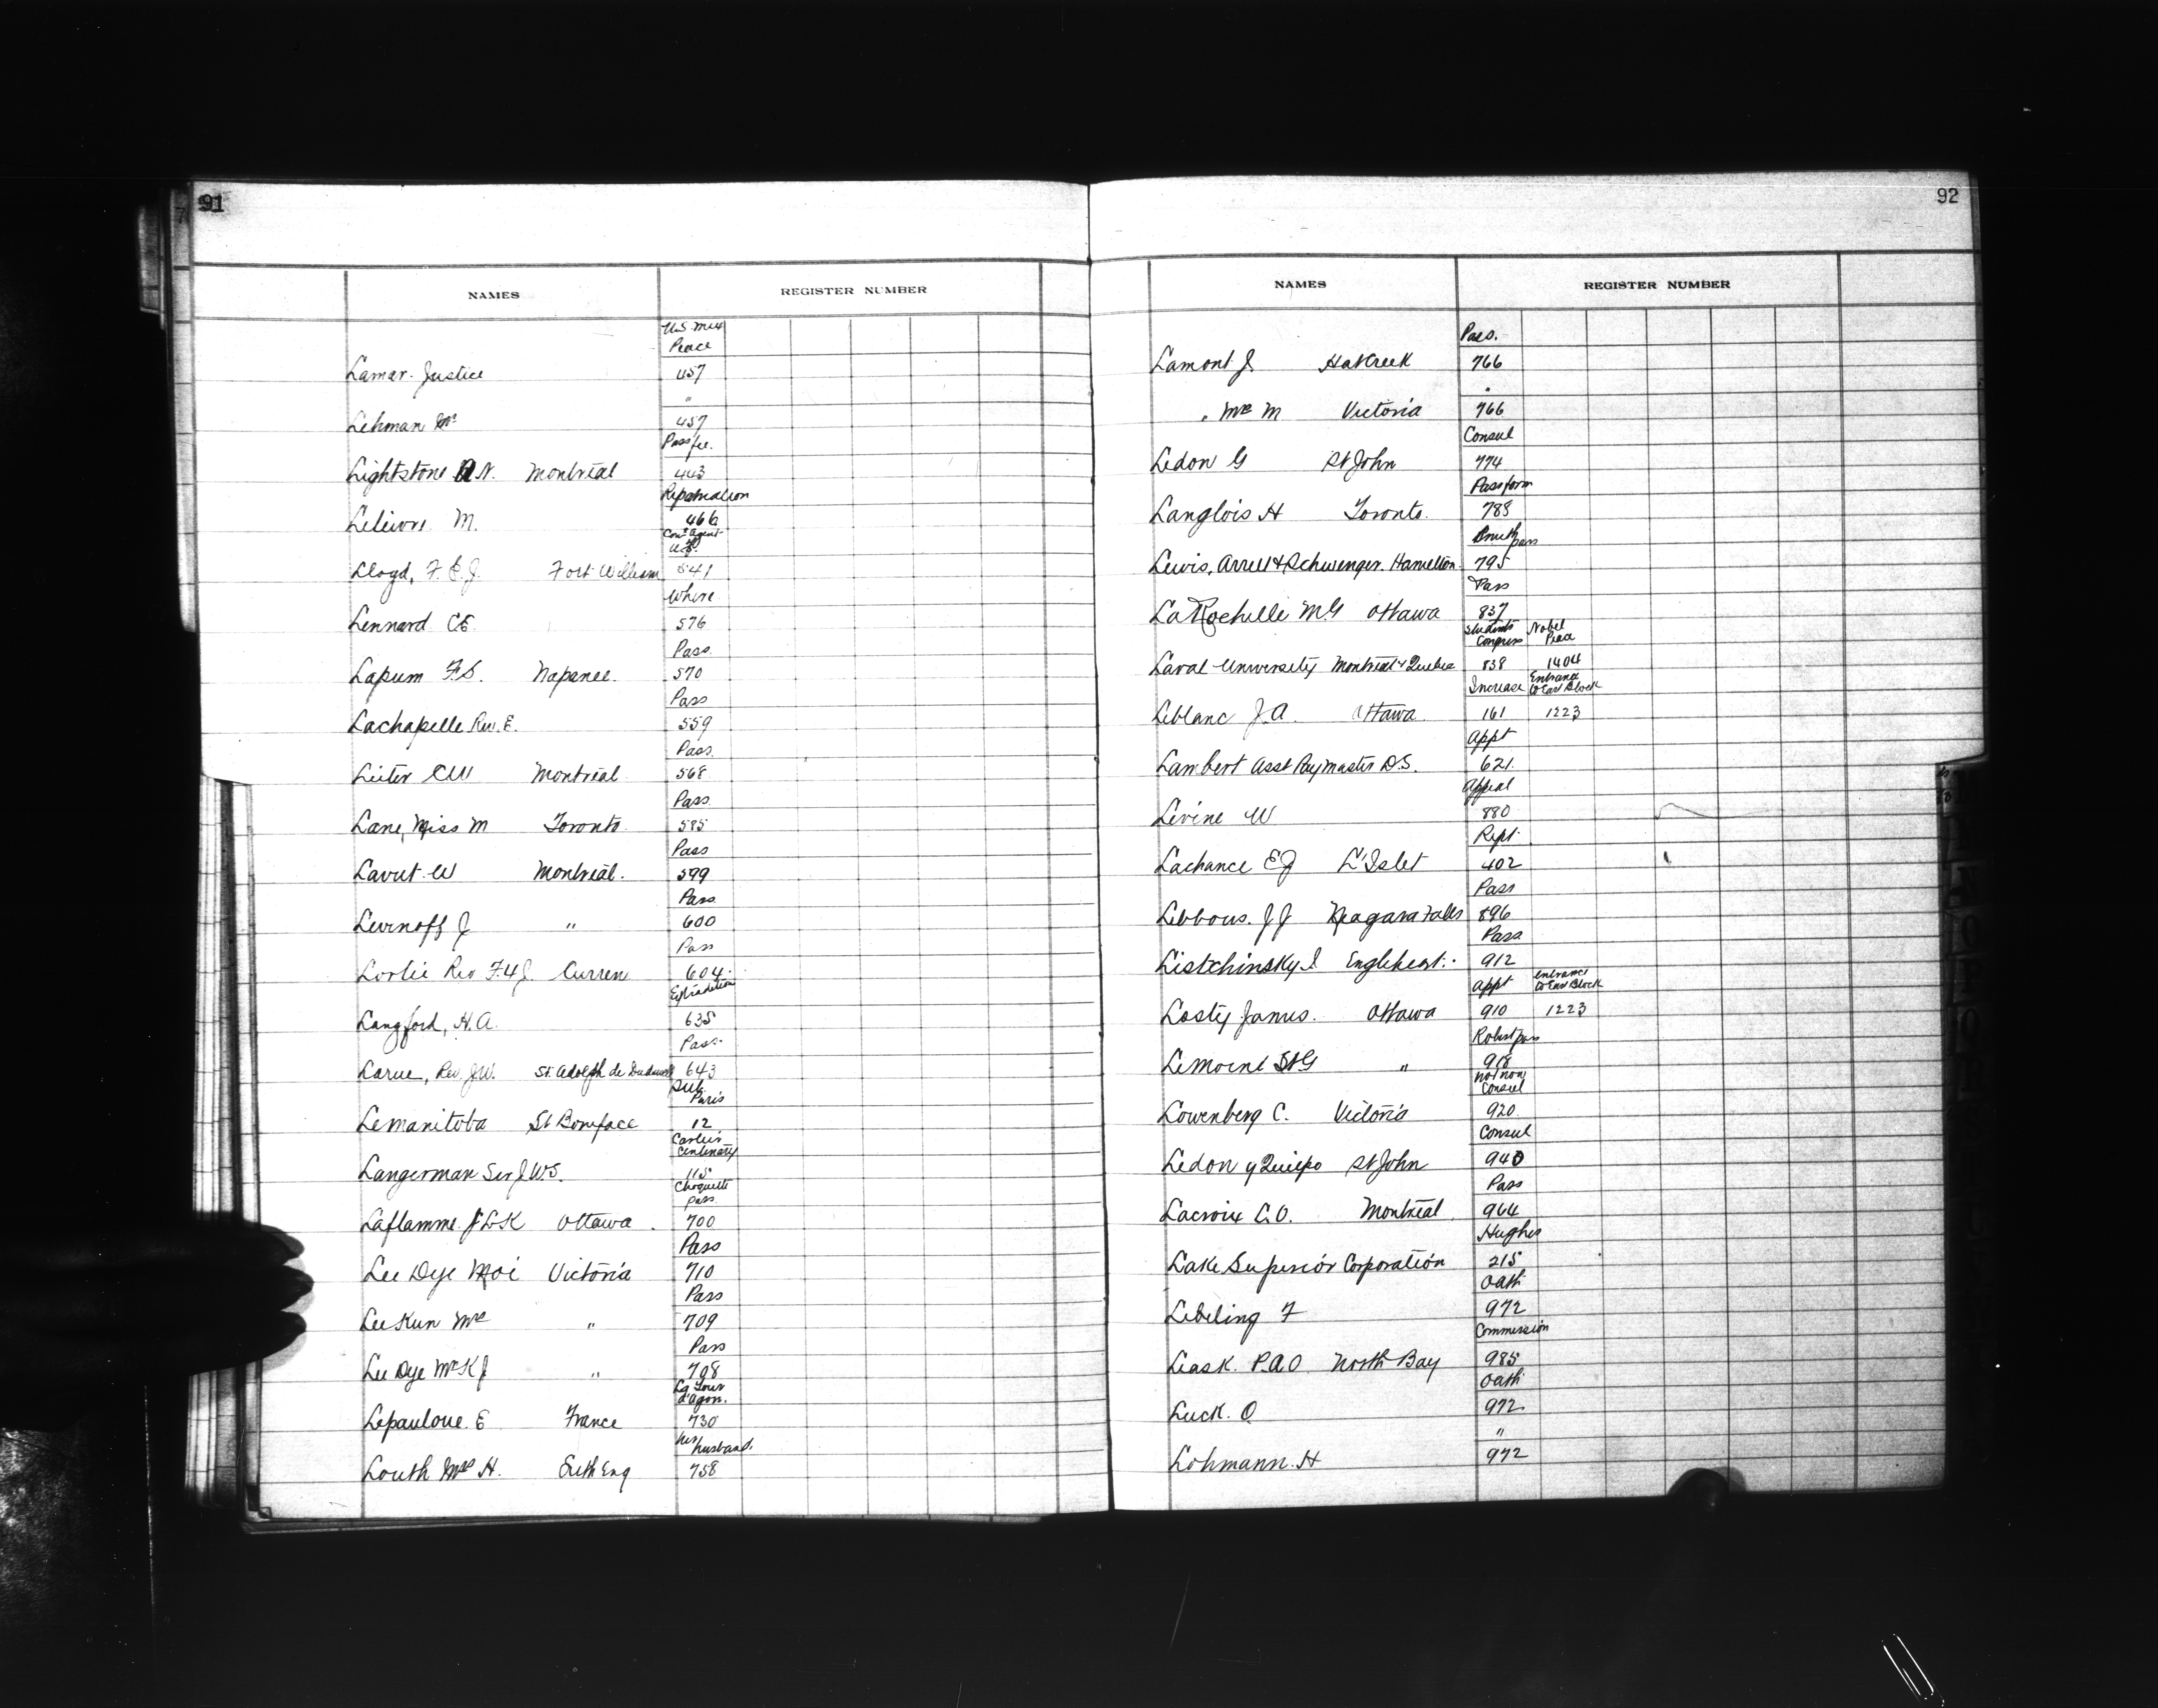 91
NAMES REGISTER NUMBER
U.S. Mex
Peace
Lamar. Justice 457
"
Lehman Mr 457
Pass fee.
Lightstone A N. Montreal 443
Repatriation
Lelievre M. 466
Conr Agent
U.S.
Lloyd, F. E. J. Fort William 541
Where
Lennard C E 576
Pass.
Lapum F. S. Napanee. 570
Pass
Lachapelle Rev. E. 559
Pass.
Leiter C W Montreal 568
Pass.
Lane, Miss M Toronto 585
Pass
Lavut W Montreal. 599
Pass.
Levinoff J " 600
Pass
Leslie Rev F. 4 J. Curren 604
Extradition
Langford, H. A. 635
Pass
Larue, Rev J. W. St. Adolph de 643
Sub.
Paris
Le Manitoba St Boniface 12
Cartier
Centenary
Langerman Sir J. W. S. 115
Choquette
pass
Laflamme J L K Ottawa. 700
Pass
Lee Dye Moi Victoria 710
Pass
Lee Kun Mrs " 709
Pass
Lee Dye Mr K J " 708
La Tour
d'Agon.
E France 730
her husband.
Louth Mrs H. Eng 758
92
NAMES REGISTER NUMBER
Pass.
Lamont J. Hat Creek 766
"
" Mrs M Victoria 766
Consul
Ledon G St John 774
Pass form
Langlois H Toronto. 788
pass
Lewis, Arrell & Schwenger. Hamilton 795
Pass
La Rochelle M. G Ottawa 837
Students Congress Nobel Peace
Laval University Montreal & Quebec 838 1404
Increase Entrance to East Block
Leblanc J. A. Ottawa 161 1223
Appt
Lambert Asst Paymaster D. S. 621.
Appeal
Levine W 880
Rept.
Lachance E J L'Islet 402
Pass
Lebbous. J J Niagara Falls 896
Pass
Listchinsky I Englehart. 912
Appt Entrance to East Block
Losty James. Ottawa 910 1223
Robert pass
Lemoine St G " 918
not now
Consul
Lowenberg C. Victoria 920.
Consul
Ledon y Quiepo St John 940
Pass
Lacroix C. O. Montreal 964
Hughes
Lake Superior Corporation 215
Oath
Lebeling F 972
Commission
Leask. P. A. O North Bay 985
Oath
Luck. O 972.
"
Lohmann. H 972